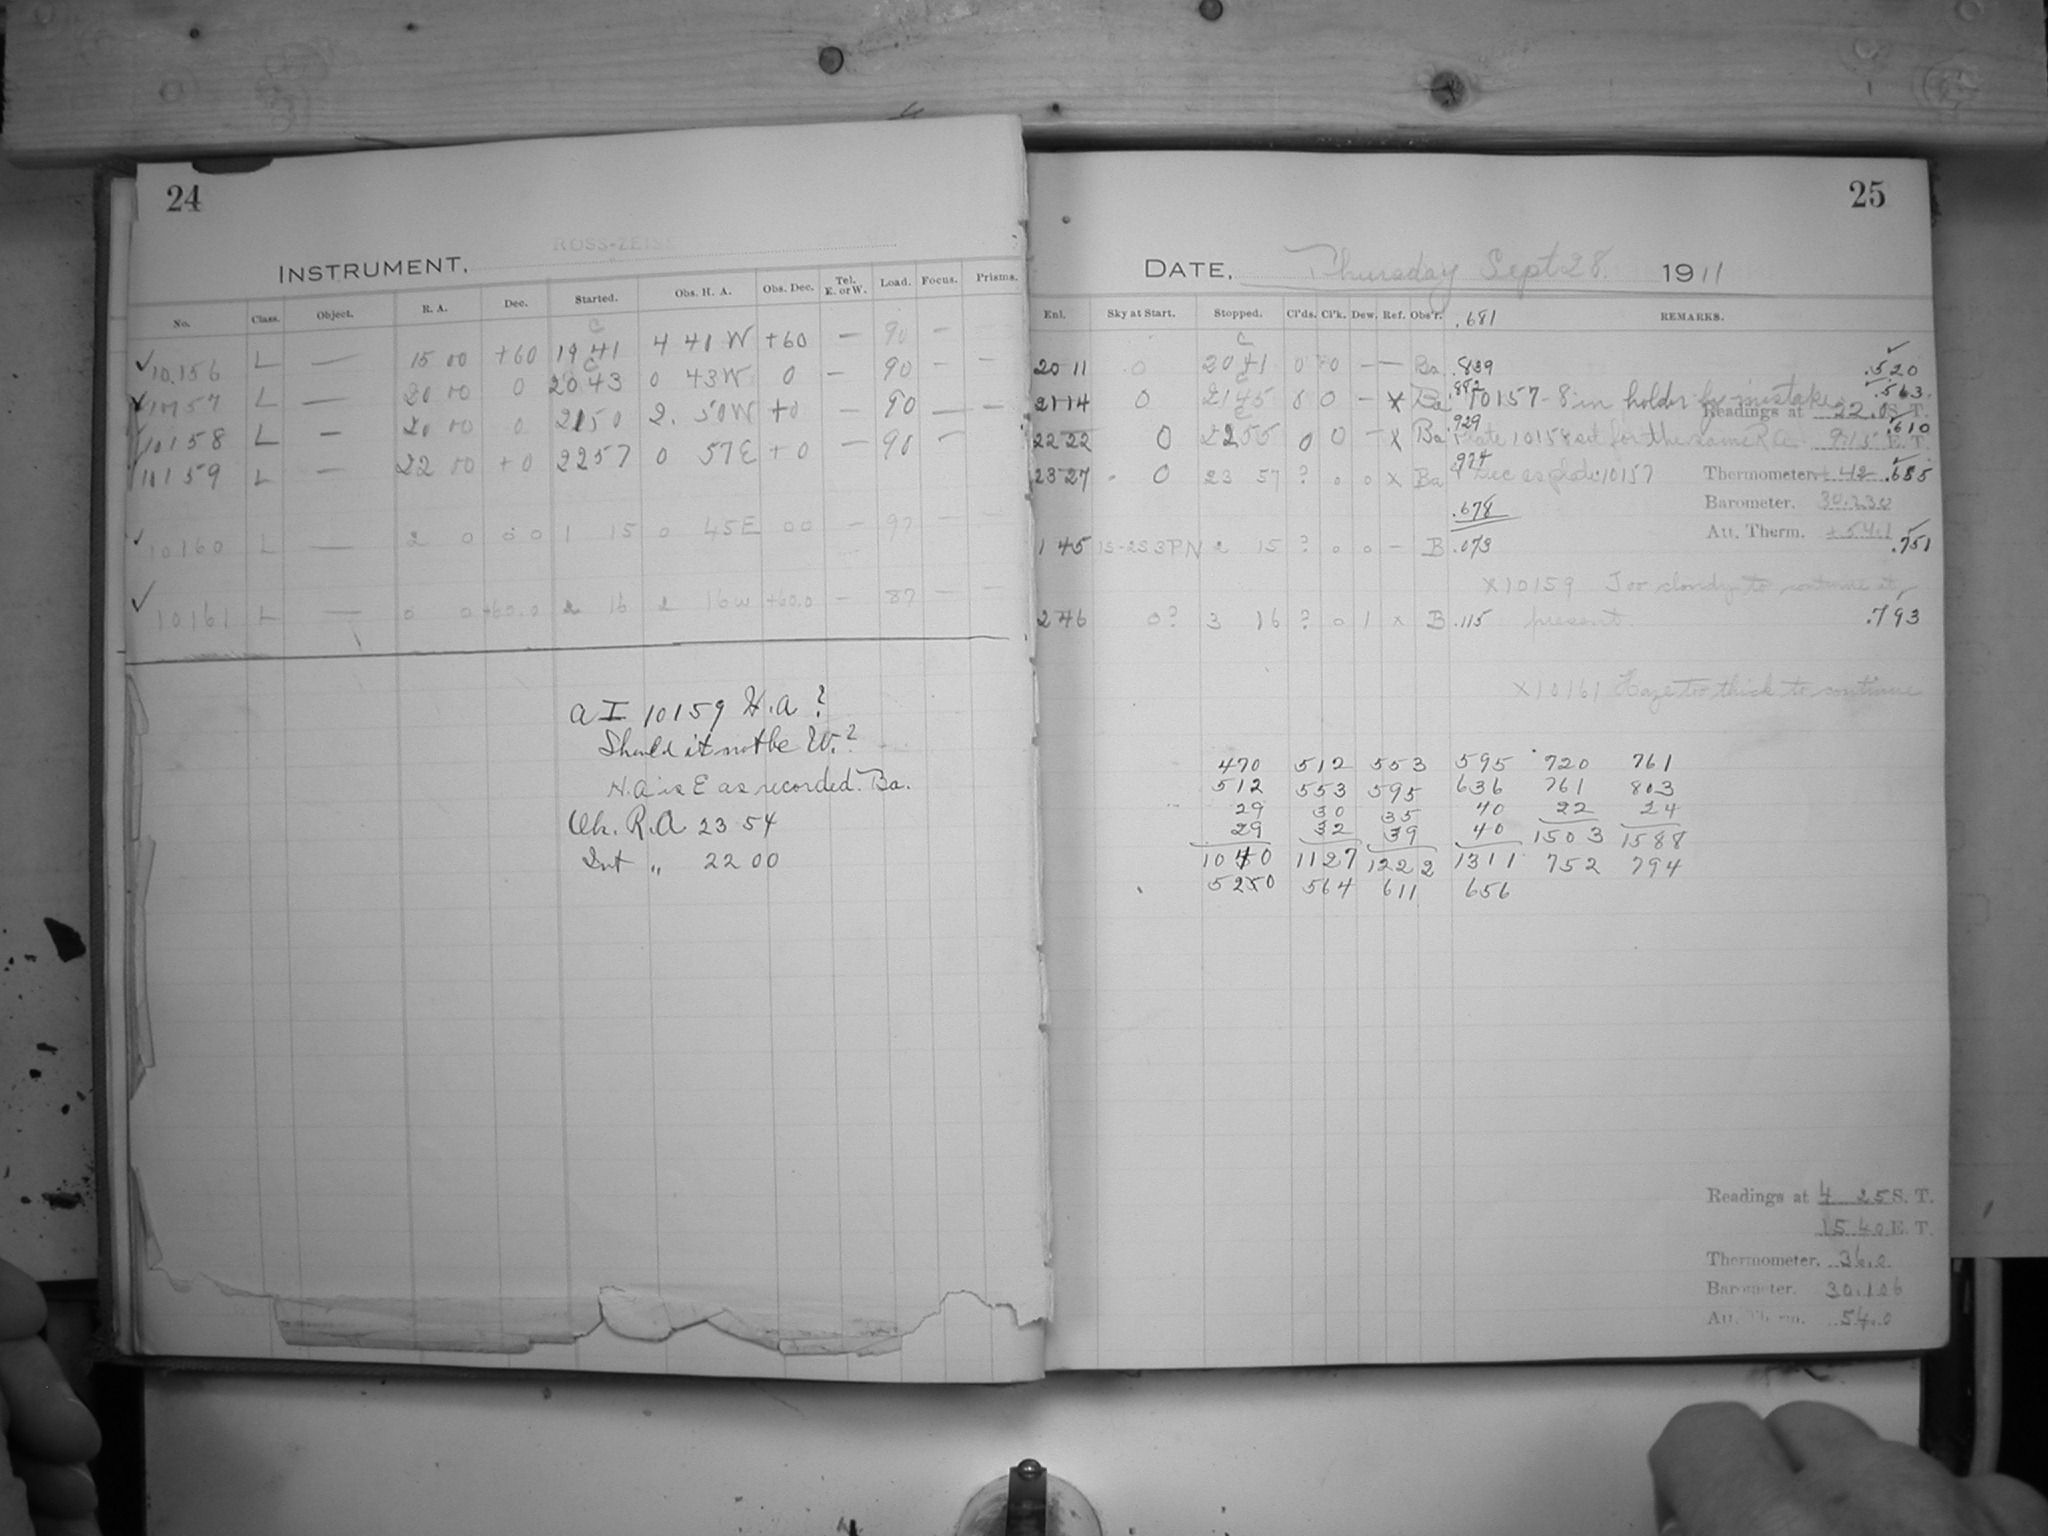 24
ROSS-ZEISS
INSTRUMENT,
No. Class. Object. R. A. Dec. Started. Obs. H. A. Obs. Dec. Tel. E. or W. Load. Focus. Prisms.
✓ 10156 L — 15 00 +60 19 41 4 41 W +60 — 90 —
✓ 10157 L — 20 00 0 20 43 0 43 W 0 — 90 — —
✓ 10158 L — 20 00 0 21 50 2. 50 W +0 — 90 — —
✓ 10159 L — 22 00 +0 22 57 0 57 E +0 — 90 —
✓ 10160 L — 2 0 0 0 1 15 0 45 E 0 0 — 97 — —
✓ 10161 L — 0 0 +60.0 2 16 2 16 W +60.0 — 87 — —
A I 10159 H.A ?
Should it not be W.?
H.A is E as recorded. Ba.
Ch. R.A 23 54
Int " 22 00
25
DATE, Thursday Sept 28. 1911
Enl. Sky at Start. Stopped. Cl'ds. Cl'k. Dew. Ref. Obs'r. .681 REMARKS.
20 11 0 20 41 0 0 — — Ba .839 .520
21 14 0 21 45 0 0 — x Ba .882 10157-8 in holder by mistake .563
Readings at 22.0 S. T.
22 22 0 22 55 0 0 — x Ba .929 Plate 10158 set for the same R.A. 9.15 E. T. .610
23 27 0 23 57 ? 0 0 x Ba .974 & Dec as plate 10157 Thermometer. +42 .685
.678 Barometer. 30.230
Att. Therm. +54.1
1 45 1S-2S 3PN 2 15 ? 0 0 — B .073 .751
x10159 Too cloudy to continue at
2 46 0? 3 16 ? 0 1 x B .115 present. .793
x10161 Haze too thick to continue
470 512 553 595 720 761
512 553 595 636 761 803
29 30 35 40 22 24
29 32 39 40 1503 1588
1040 1127 1222 1311 752 794
520 564 611 656
Readings at 4 25 S. T.
15 40 E. T.
Thermometer. 36.0
Barometer. 30.106
Att. Therm. 54.0